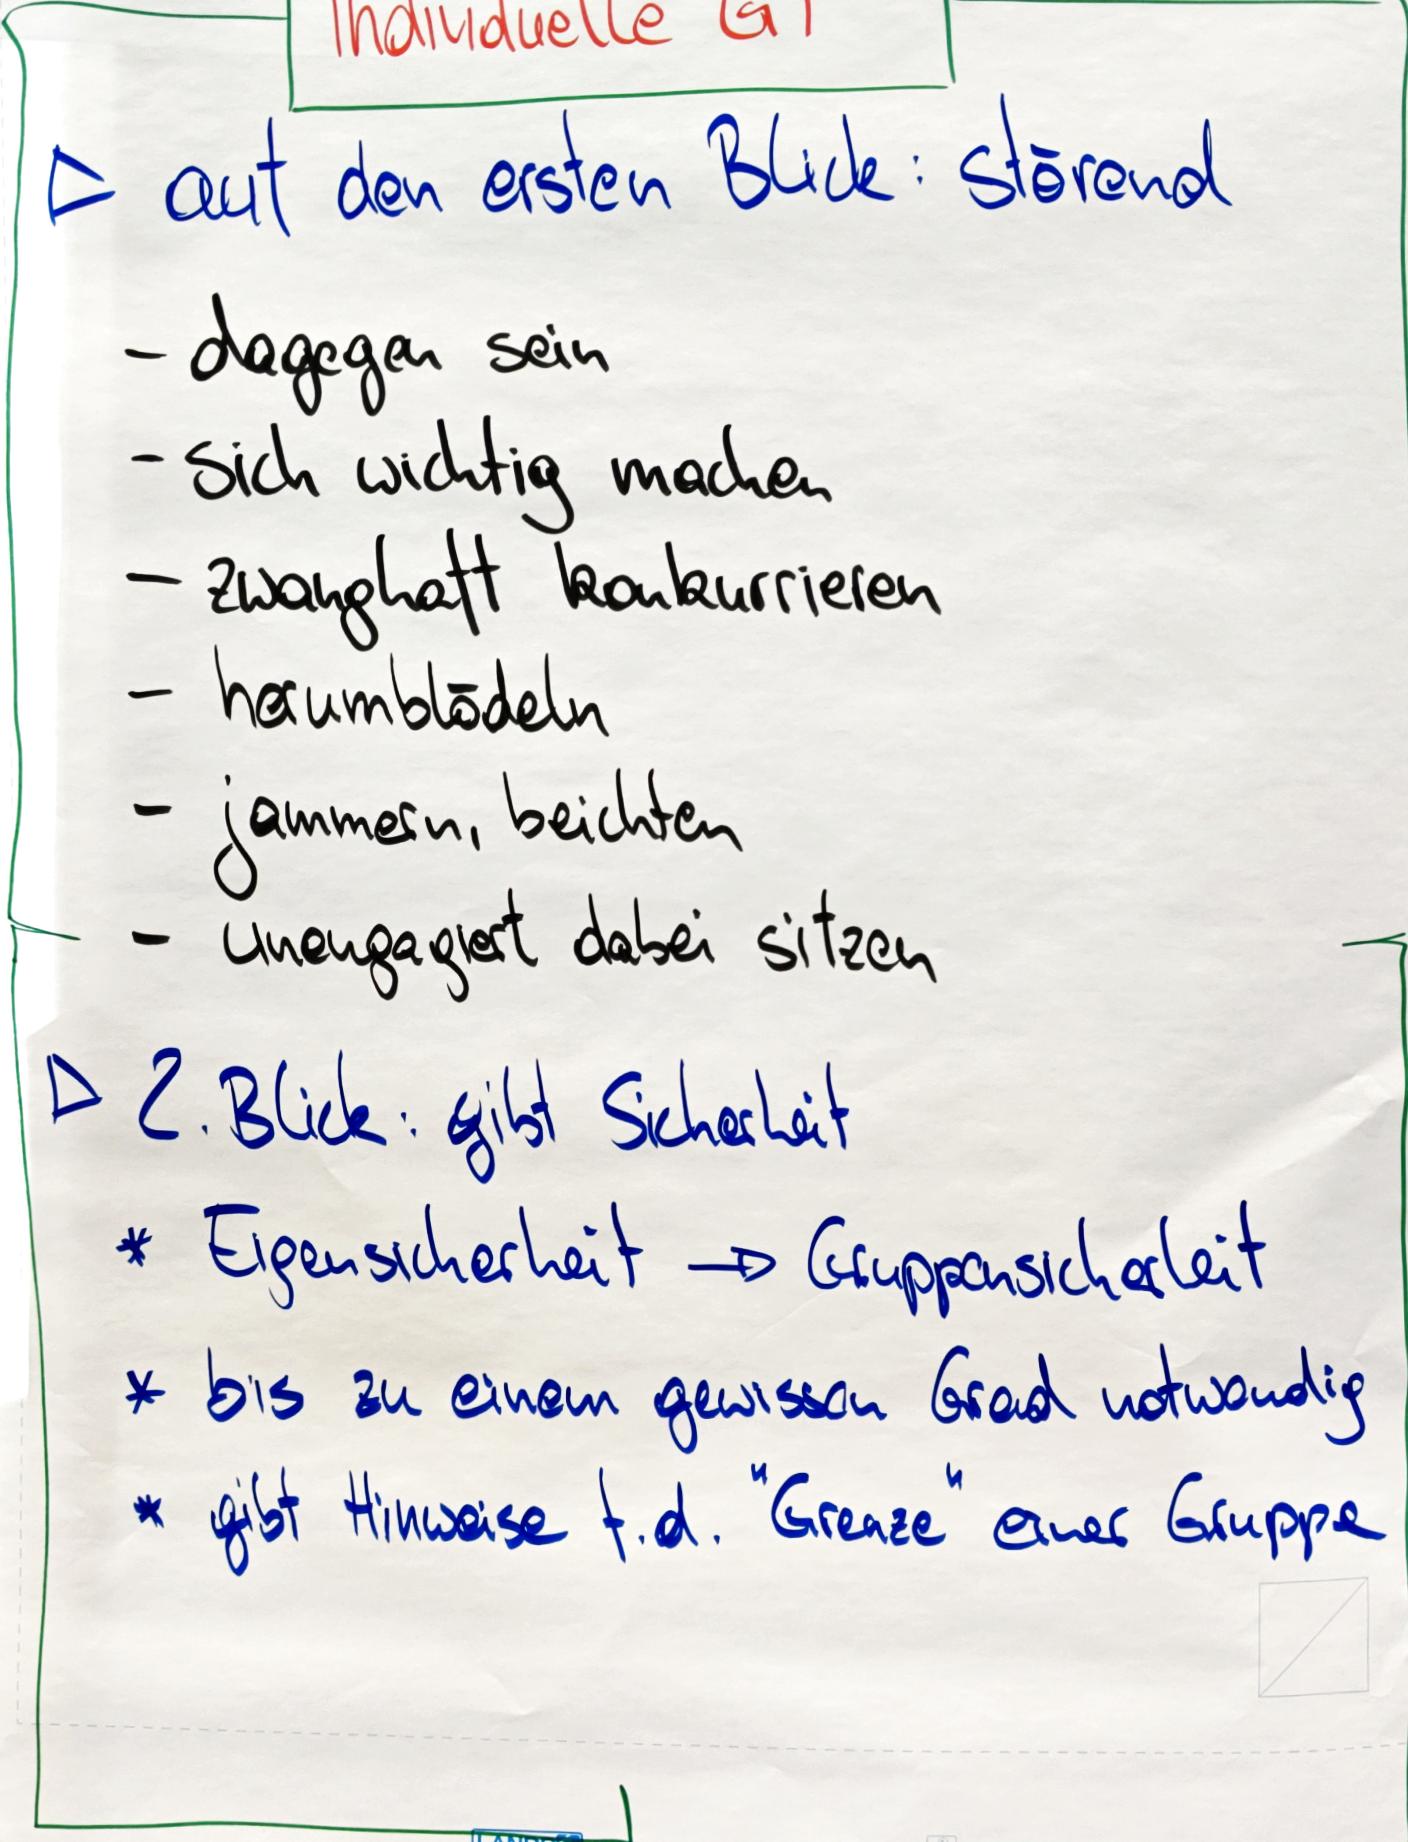 Individuelle GT
▷ auf den ersten Blick: störend
- dagegen sein
- sich wichtig machen
- zwanghaft konkurrieren
- herumblödeln
- jammern, beichten
- unengagiert dabei sitzen
▷ 2. Blick: gibt Sicherheit
* Eigensicherheit → Gruppensicherheit
* bis zu einem gewissen Grad notwendig
* gibt Hinweise f.d. "Grenze" einer Gruppe